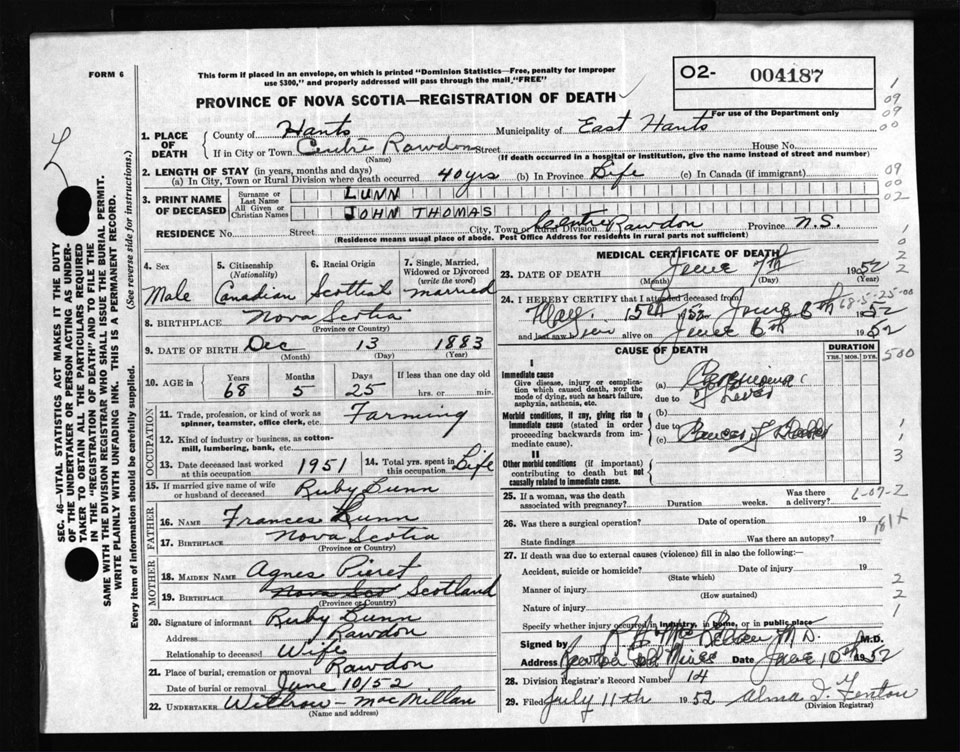 FORM 6
This form if placed in an envelope, on which is printed "Dominion Statistics—Free, penalty for improper
use $300," and properly addressed will pass through the mail, "FREE"
PROVINCE OF NOVA SCOTIA—REGISTRATION OF DEATH
O2- 004187
For use of the Department only
1. PLACE OF DEATH
County of Hants Municipality of East Hants
If in City or Town Centre Rawdon Street House No.
(Name) (If death occurred in a hospital or institution, give the name instead of street and number)
2. LENGTH OF STAY (in years, months and days)
(a) In City, Town or Rural Division where death occurred 40 yrs (b) In Province Life (c) In Canada (if immigrant)
3. PRINT NAME OF DECEASED
Surname or Last Name LUNN
All Given or Christian Names JOHN THOMAS
RESIDENCE No. Street City, Town or Rural Division Centre Rawdon Province N.S.
(Residence means usual place of abode. Post Office Address for residents in rural parts not sufficient)
4. Sex Male
5. Citizenship (Nationality) Canadian
6. Racial Origin Scottish
7. Single, Married, Widowed or Divorced (write the word) married
8. BIRTHPLACE Nova Scotia
(Province or Country)
9. DATE OF BIRTH Dec 13 1883
(Month) (Day) (Year)
10. AGE in Years 68 Months 5 Days 25 If less than one day old hrs. or min.
OCCUPATION
11. Trade, profession, or kind of work as spinner, teamster, office clerk, etc. Farming
12. Kind of industry or business, as cotton-mill, lumbering, bank, etc.
13. Date deceased last worked at this occupation 1951
14. Total yrs. spent in this occupation Life
15. If married give name of wife or husband of deceased Ruby Lunn
FATHER
16. NAME Frances Lunn
17. BIRTHPLACE Nova Scotia
(Province or Country)
MOTHER
18. MAIDEN NAME Agnes
19. BIRTHPLACE Nova Sco Scotland
(Province or Country)
20. Signature of informant Ruby Lunn
Address Rawdon
Relationship to deceased Wife
21. Place of burial, cremation or removal Rawdon
Date of burial or removal June 10/52
22. UNDERTAKER Withrow - MacMillan
(Name and address)
MEDICAL CERTIFICATE OF DEATH
23. DATE OF DEATH June 7th 1952
(Month) (Day) (Year)
24. I HEREBY CERTIFY that I attended deceased from
May 15th 1952 June 6th 1952
68-5-25-00
and last saw h alive on June 6th 1952
CAUSE OF DEATH
DURATION
YRS. MOS. DYS.
I
Immediate cause
Give disease, injury or complication which caused death, not the mode of dying, such as heart failure, asphyxia, asthenia, etc.
(a) Carcinoma
due to of Liver
Morbid conditions, if any, giving rise to immediate cause (stated in order proceeding backwards from immediate cause).
(b)
due to
(c) Cancer of Bladder
II
Other morbid conditions (if important) contributing to death but not causally related to immediate cause.
25. If a woman, was the death associated with pregnancy? Duration weeks. Was there a delivery?
26. Was there a surgical operation? Date of operation 19
State findings Was there an autopsy?
181X
27. If death was due to external causes (violence) fill in also the following:—
Accident, suicide or homicide? Date of injury 19
(State which)
Manner of injury
(How sustained)
Nature of injury
Specify whether injury occurred in industry, in home, or in public place
Signed by M.D. M.D.
Address Mines Date June 10th 1952
28. Division Registrar's Record Number 14
29. Filed July 11th 1952 Alma J. Fenton
(Division Registrar)
SEC. 46—VITAL STATISTICS ACT MAKES IT THE DUTY
OF THE UNDERTAKER OR PERSON ACTING AS UNDERTAKER TO OBTAIN ALL THE PARTICULARS REQUIRED
IN THE "REGISTRATION OF DEATH" AND TO FILE THE
SAME WITH THE DIVISION REGISTRAR WHO SHALL ISSUE THE BURIAL PERMIT.
WRITE PLAINLY WITH UNFADING INK. THIS IS A PERMANENT RECORD.
Every item of information should be carefully supplied. (See reverse side for instructions.)
1
09
09
00
09
00
02
1
0
2
2
500
1
1
3
2
2
1